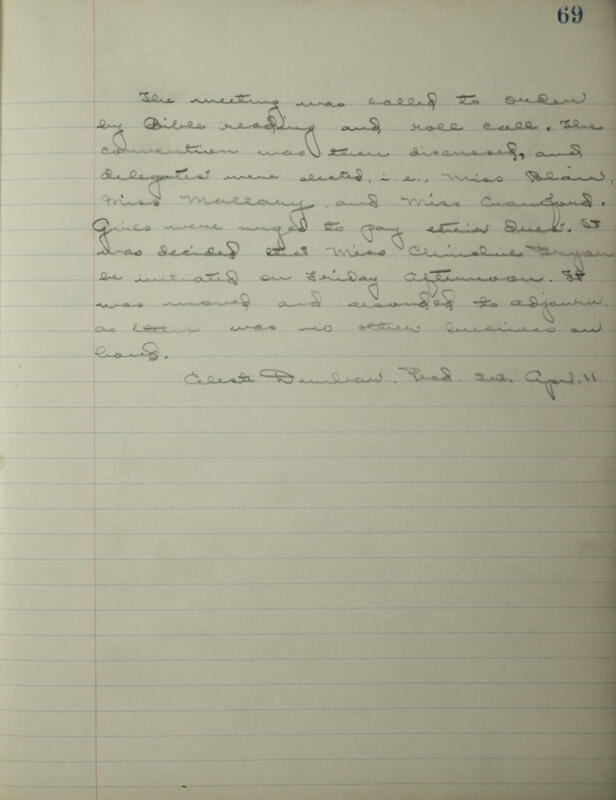 69
The meeting was called to order
by Bible reading and roll call. The
convention was then discussed, and
delegates were elected, i.e., Miss Blair,
Miss Mallary, and Miss Crawford.
Girls were urged to pay their dues. It
was decided that Miss Bryan
be initiated on Friday afternoon. It
was moved and seconded to adjourn
as there was no other business on
hand.
Celeste Dunbar. Rec. Sec. April. 11